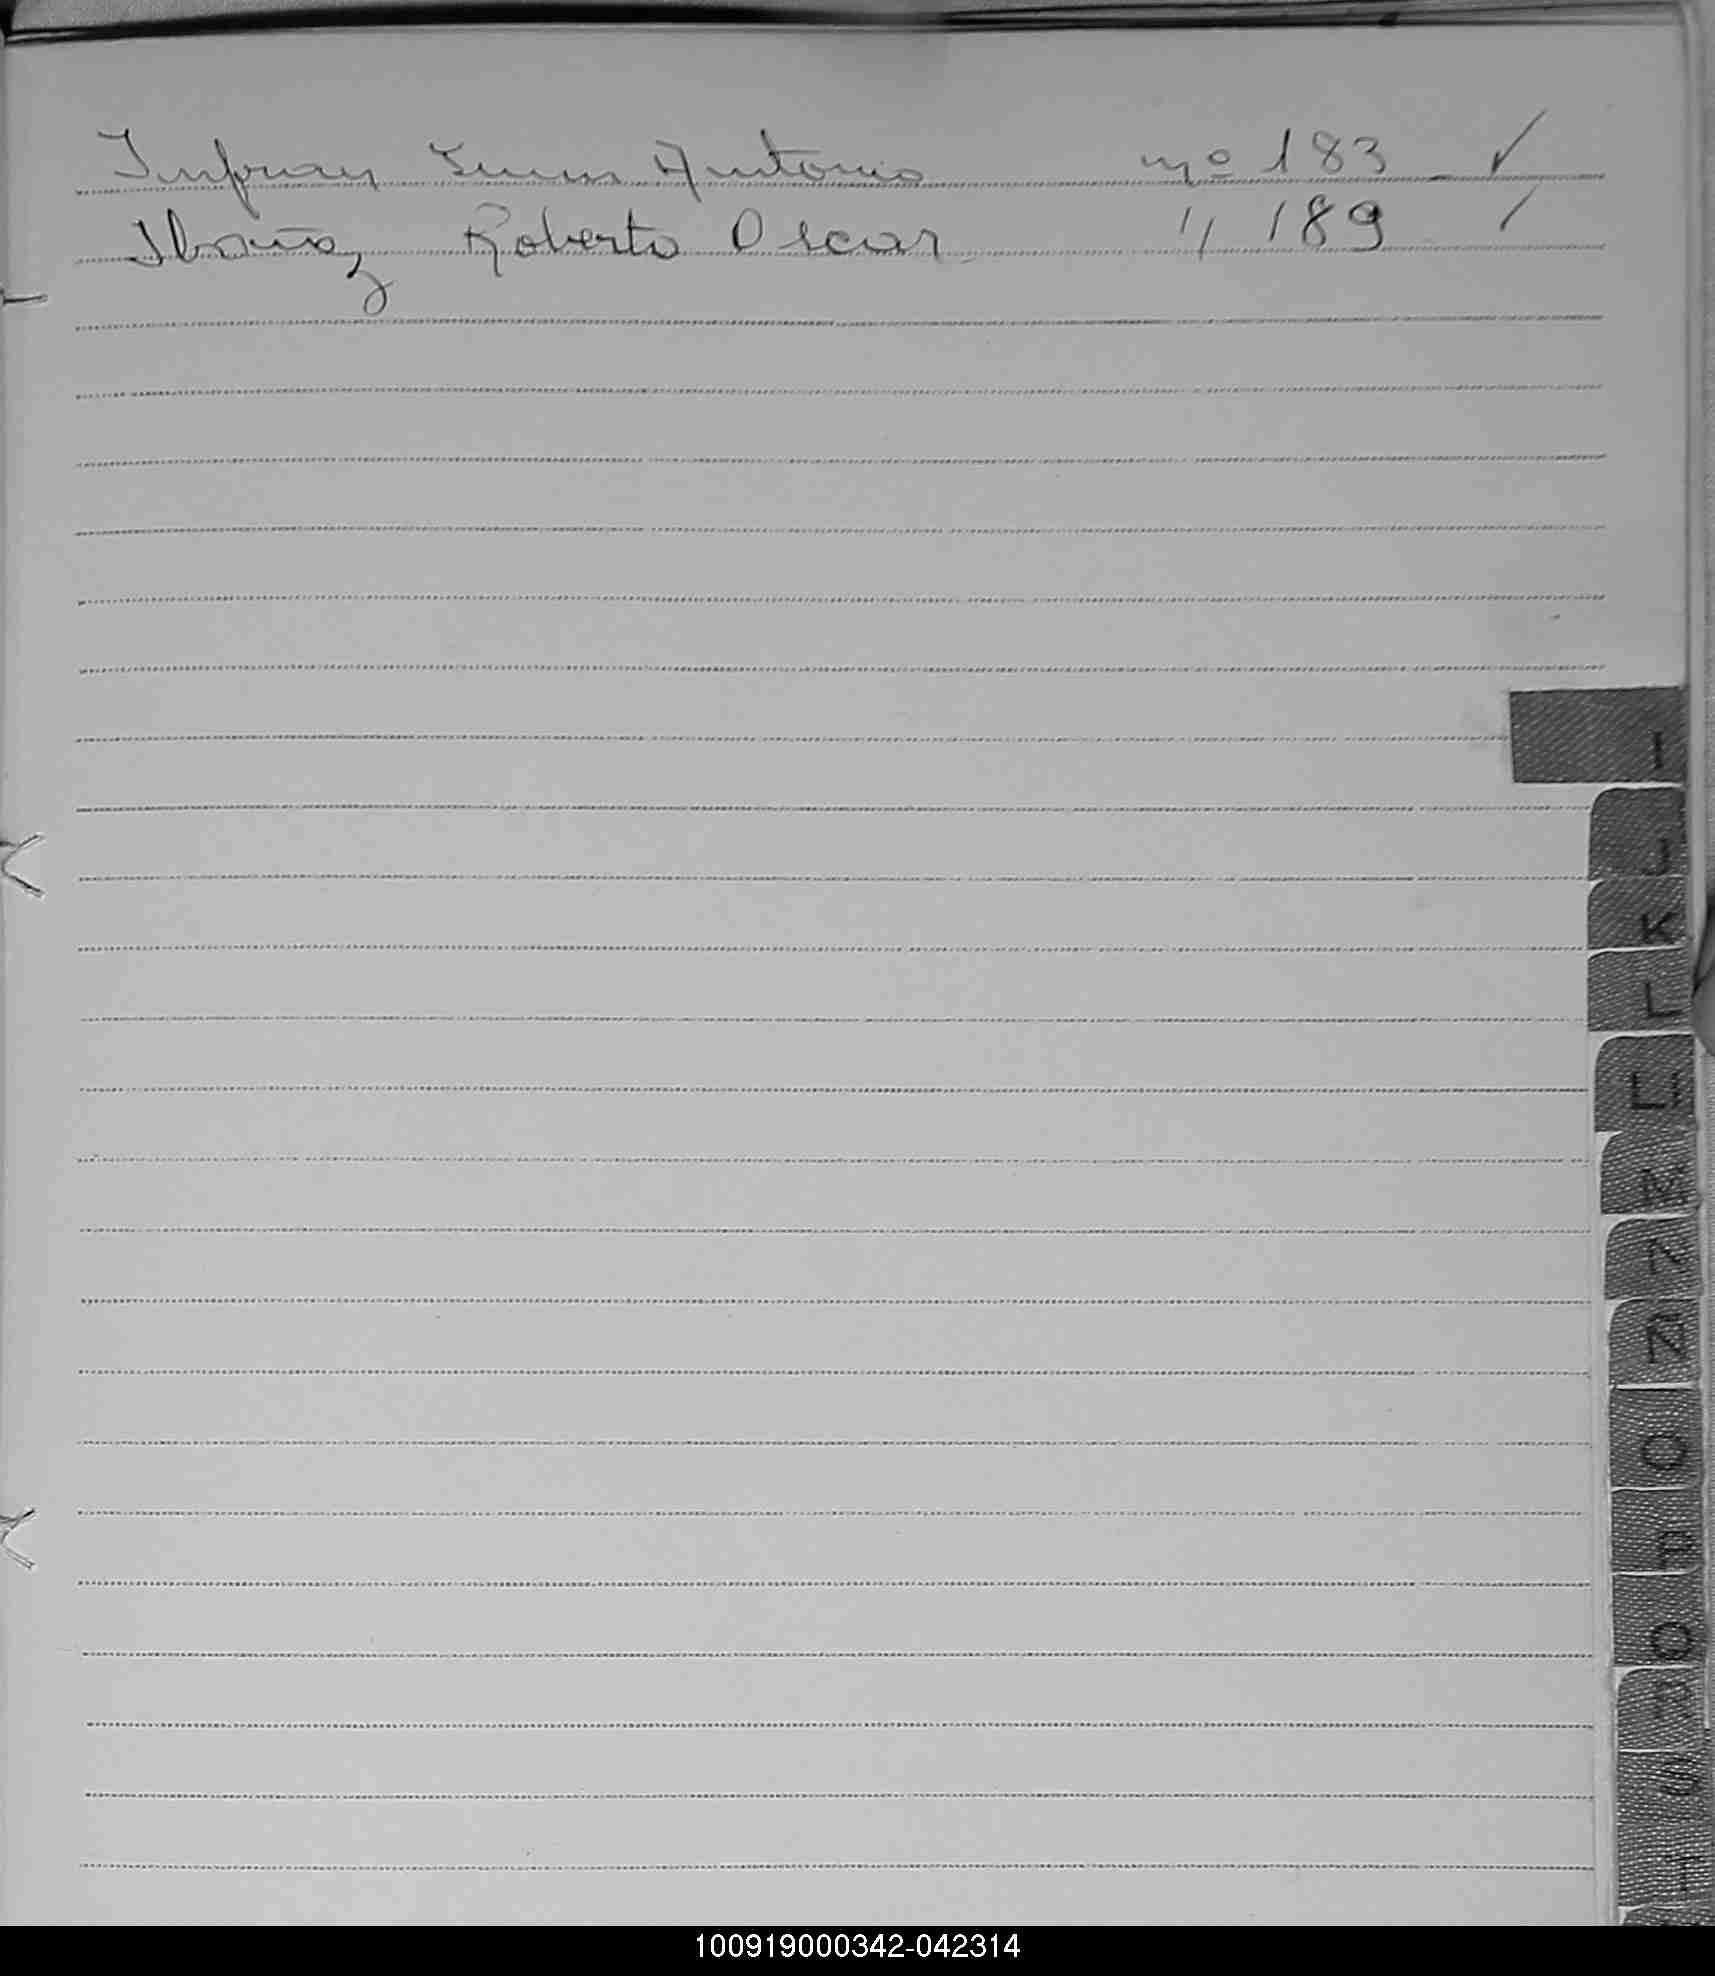 Antonio nº 183 ✓
Ibañez Roberto Oscar " 189 /
I
J
K
L
LL
M
N
Ñ
O
P
Q
R
S
T
100919000342-042314